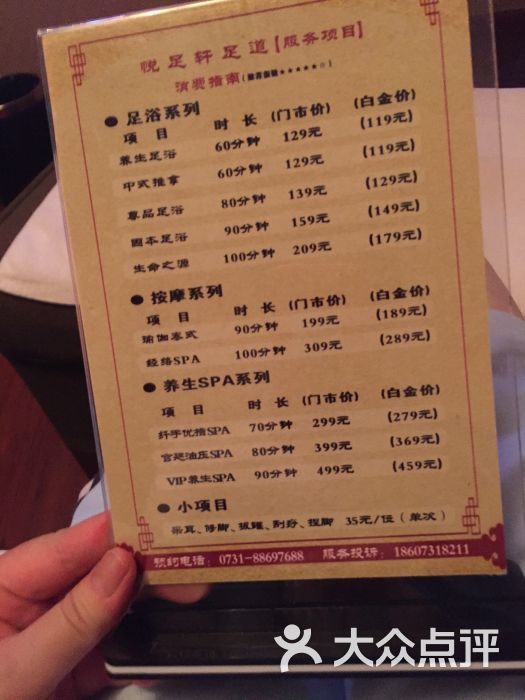 悦足轩足道【服务项目】
消费指南(推荐指数★★★★★☆)
● 足浴系列
项目 时长 (门市价) (白金价)
养生足浴 60分钟 129元 (119元)
中式推拿 60分钟 129元 (119元)
尊品足浴 80分钟 139元 (129元)
固本足浴 90分钟 159元 (149元)
生命之源 100分钟 209元 (179元)
● 按摩系列
项目 时长 (门市价) (白金价)
瑜伽泰式 90分钟 199元 (189元)
经络SPA 100分钟 309元 (289元)
● 养生SPA系列
项目 时长 (门市价) (白金价)
纤手优指SPA 70分钟 299元 (279元)
宫廷油压SPA 80分钟 399元 (369元)
VIP养生SPA 90分钟 499元 (459元)
● 小项目
采耳、修脚、拔罐、刮痧、捏脚 35元/位（单次）
预约电话：0731-88697688 服务投诉：18607318211
大众点评